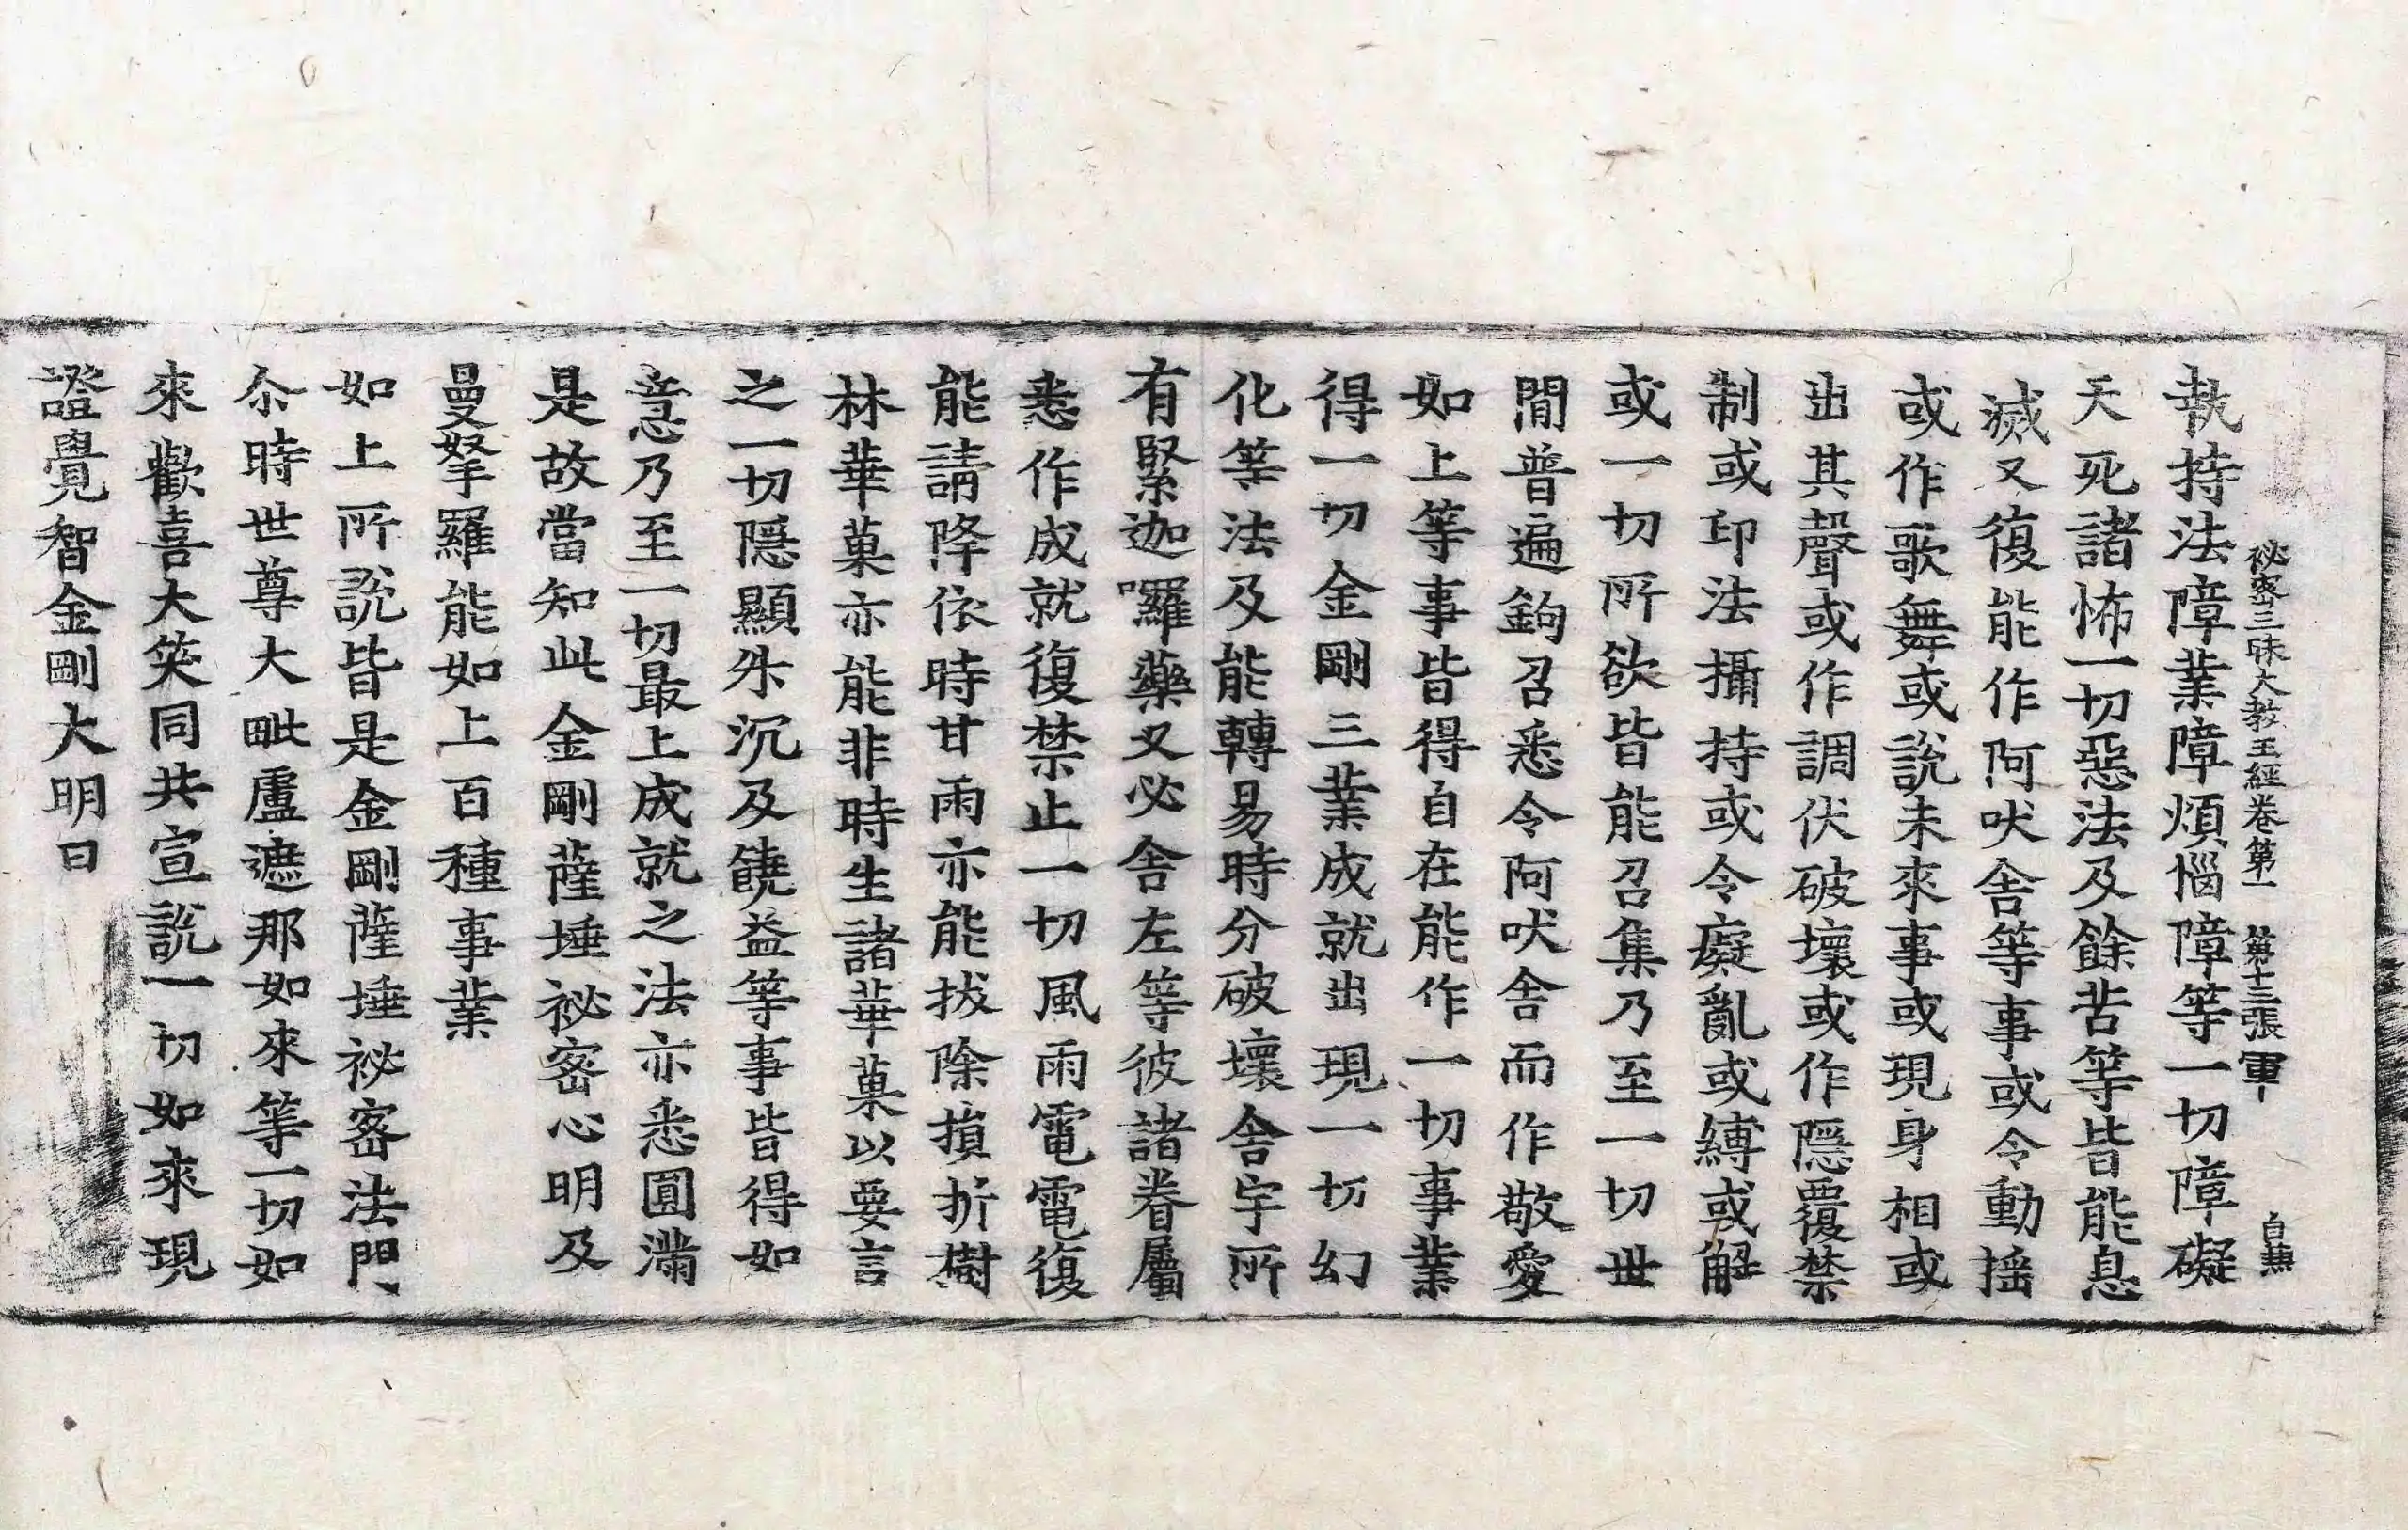 祕密三昧大教王經卷第一 第十三張 軍
執持法障業障煩惱障等一切障礙
夭死諸怖一切惡法及餘苦等皆能息
滅又復能作阿吠舍等事或令動揺
或作歌舞或說未來事或現身相或
出其聲或作調伏破壞或作隱覆禁
制或印法攝持或令癡亂或縛或解
或一切所欲皆能召集乃至一切世
閒普遍鉤召悉令阿吠舍而作敬愛
如上等事皆得自在能作一切事業
得一切金剛三業成就出現一切幻
化等法及能轉易時分破壞舍宇所
有緊迦囉藥叉必舍左等彼諸眷屬
悉作成就復禁止一切風雨電電復
能請降依時甘雨亦能拔除損折樹
林華菓亦能非時生諸華菓以要言
之一切隱顯㳍沉及饒益等事皆得如
意乃至一切最上成就之法亦悉圓滿
是故當知此金剛薩埵祕密心明及
曼拏羅能如上百種事業
如上所說皆是金剛薩埵祕密法門
尒時世尊大毗盧遮那如來等一切如
來歡喜大笑同共宣說一切如來現
證覺智金剛大明曰